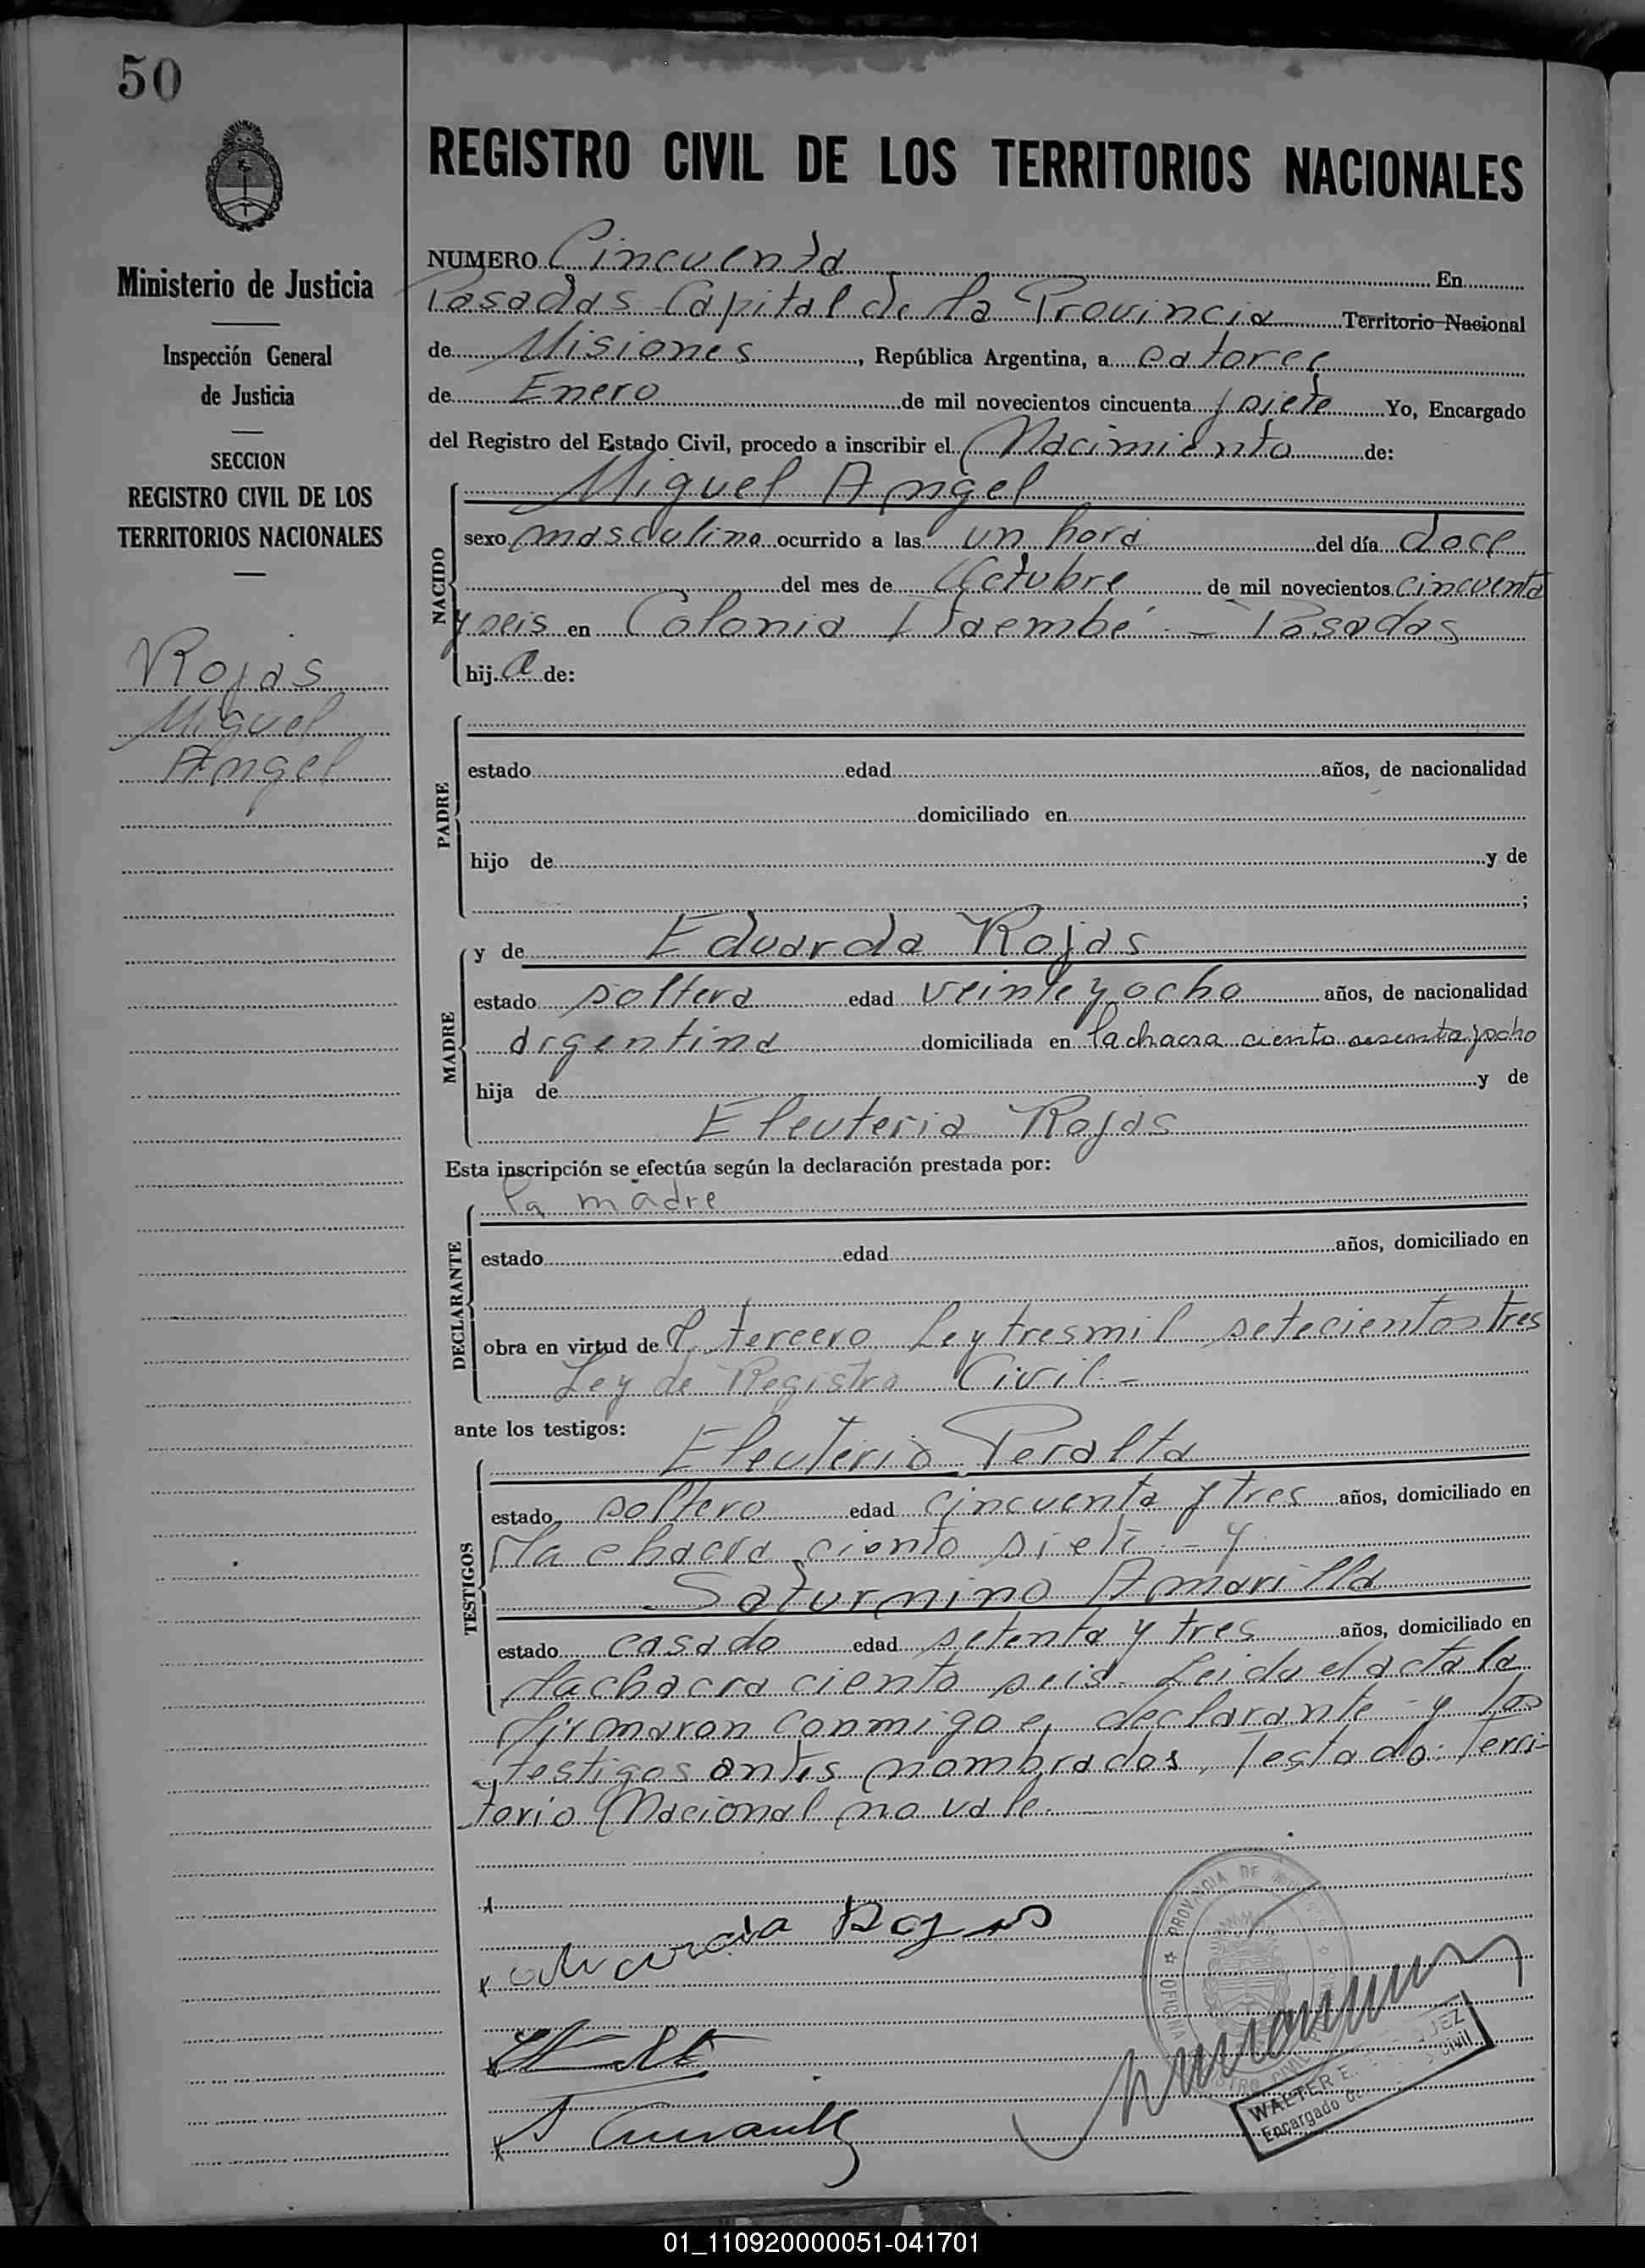 50
REGISTRO CIVIL DE LOS TERRITORIOS NACIONALES
Ministerio de Justicia
Inspección General
de Justicia
SECCION
REGISTRO CIVIL DE LOS
TERRITORIOS NACIONALES
Rojas
Miguel
Angel
NUMERO Cincuenta En
Posadas Capital de la Provincia Territorio Nacional
de Misiones, República Argentina, a catorce
de Enero de mil novecientos cincuenta y siete Yo, Encargado
del Registro del Estado Civil, procedo a inscribir el Nacimiento de:
NACIDO
Miguel Angel
sexo masculino ocurrido a las un hora del día doce
del mes de Octubre de mil novecientos cincuenta
y seis en Colonia Itaembé - Posadas
hij a de:
PADRE
estado edad años, de nacionalidad
domiciliado en
hijo de y de
;
MADRE
y de Eduarda Rojas
estado soltera edad veinte y ocho años, de nacionalidad
argentina domiciliada en la chacra ciento sesenta y ocho
hija de y de
Eleuteria Rojas
Esta inscripción se efectúa según la declaración prestada por:
DECLARANTE
la madre
estado edad años, domiciliado en
obra en virtud de tercero Ley tres mil setecientos tres
Ley de Registro Civil.-
ante los testigos:
TESTIGOS
Eleuterio Peralta
estado soltero edad cincuenta y tres años, domiciliado en
la chacra ciento siete.- y
Saturnino Amarilla
estado casado edad setenta y tres años, domiciliado en
la chacra ciento seis. Leida el acta la
firmaron conmigo el declarante y los
testigos antes nombrados. Testado: Terri-
torio Nacional no vale.
Rojas
PROVINCIA DE
WALTER E.
Encargado Civil
01_110920000051-041701